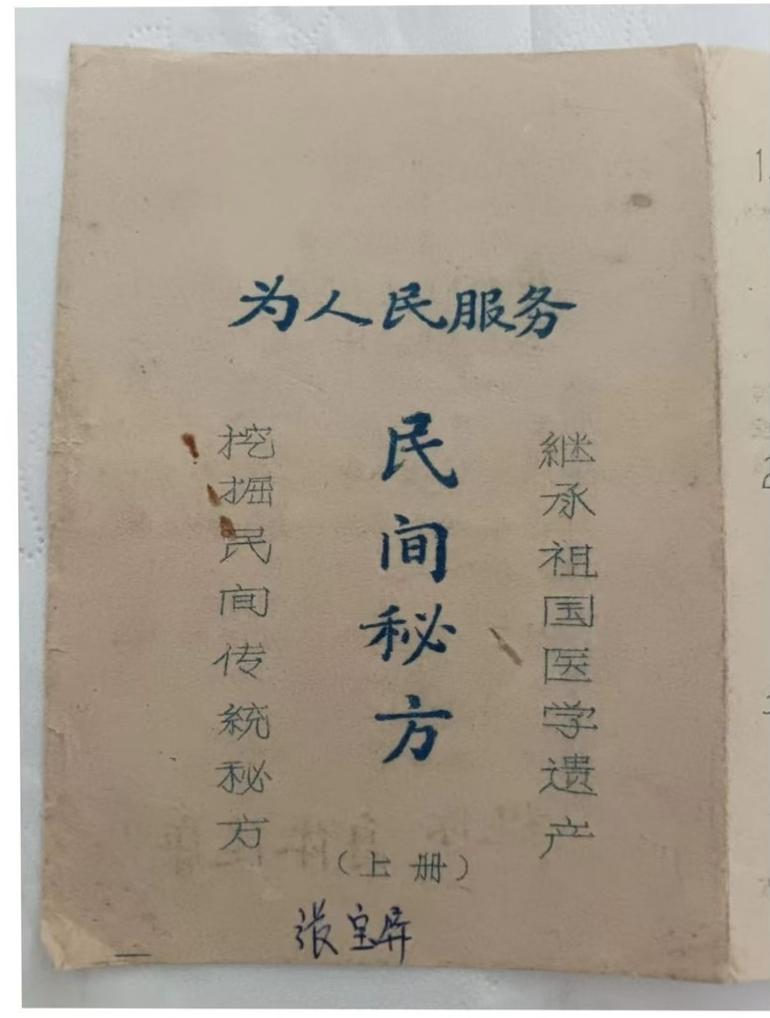 为人民服务
继承祖国医学遗产
民间秘方
挖掘民间传统秘方
（上册）
张宝屏
1.
2